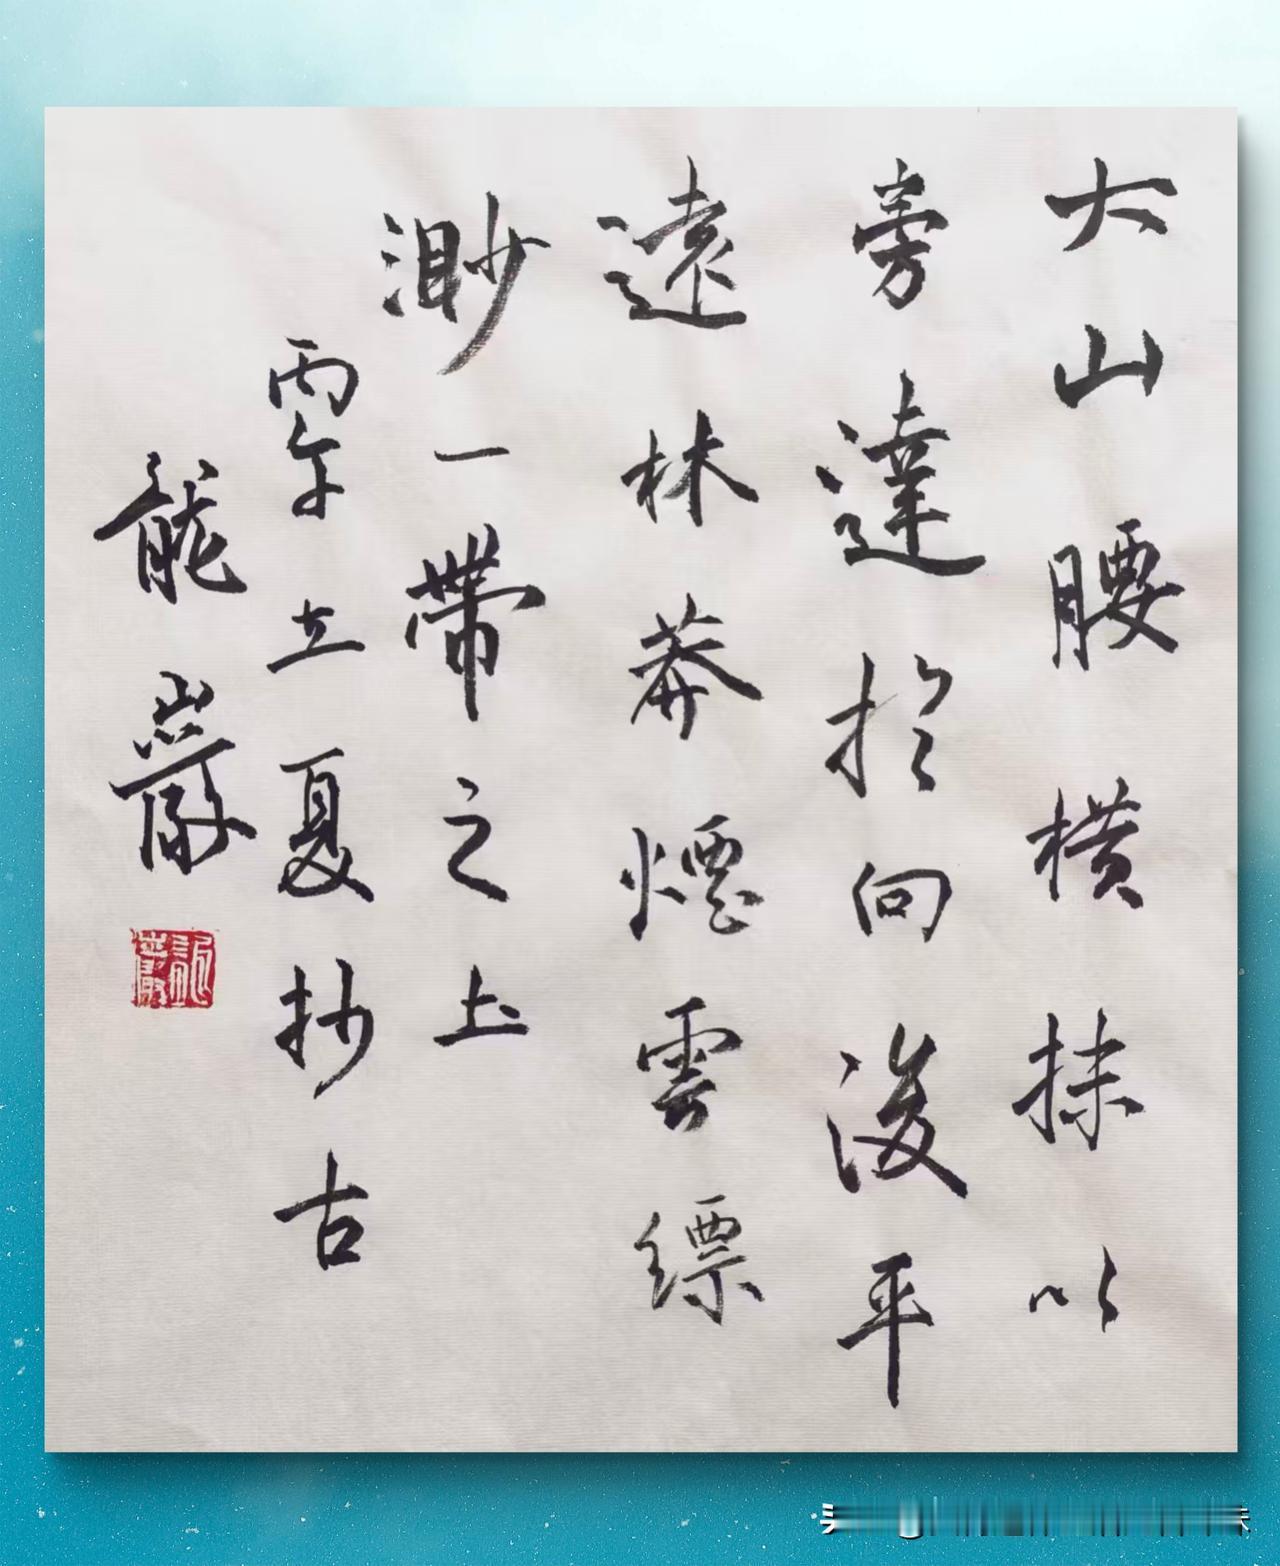 大山腰橫抹以
旁達於向後平
遠林莽煙雲縹
渺一帶之上
丙午立夏抄古
龍巖